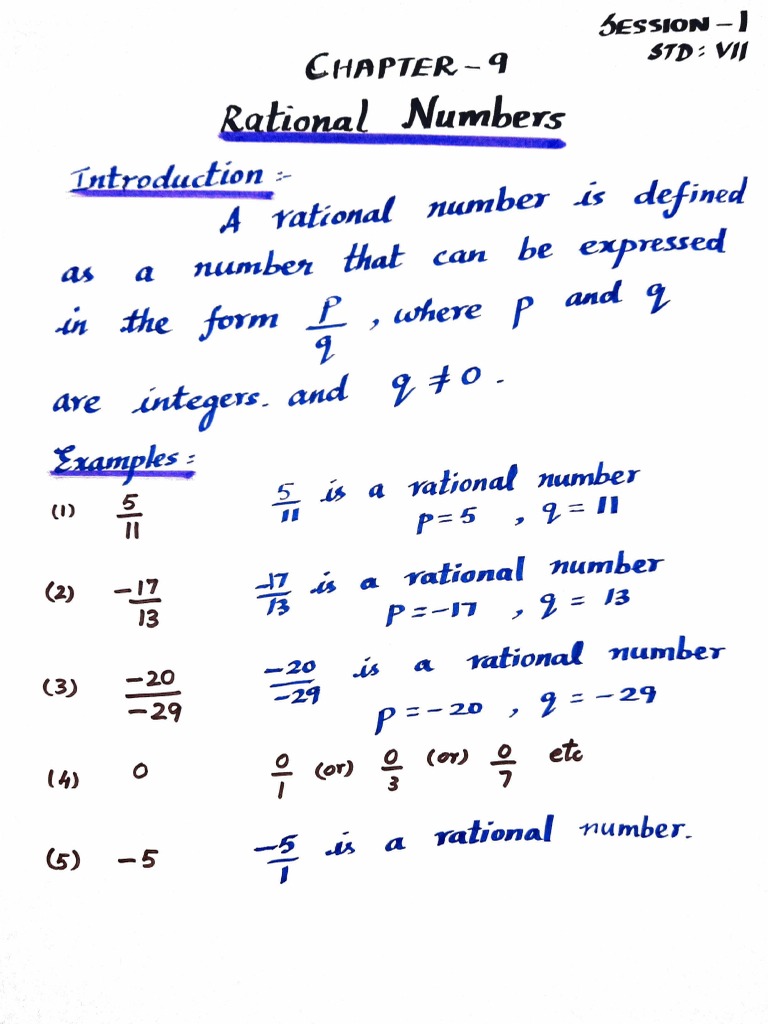 SESSION - 1
STD: VII
CHAPTER - 9
Rational Numbers
Introduction :-
A rational number is defined
as a number that can be expressed
in the form p/q, where p and q
are integers. and q ≠ 0.
Examples:
(1) 5/11 5/11 is a rational number
p=5 , q = 11
(2) -17/13 -17/13 is a rational number
p=-17 , q = 13
(3) -20/-29 -20/-29 is a rational number
p=-20 , q = -29
(4) 0 0/1 (or) 0/3 (or) 0/7 etc
(5) -5 -5/1 is a rational number.